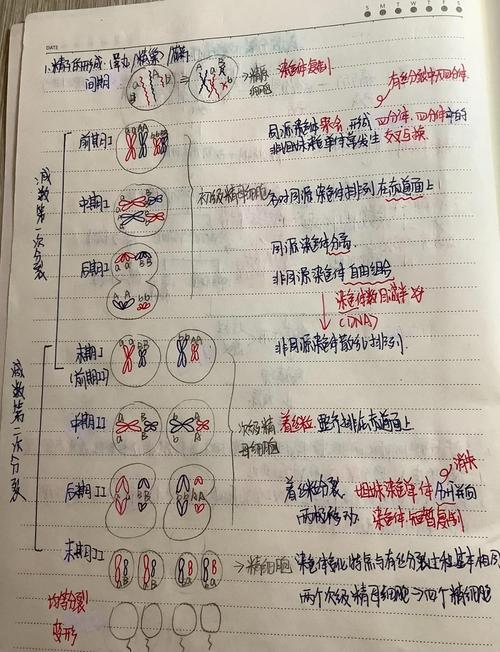 DATE
S M T W T F S
1.精子的形成:睾丸/
间期
→精原细胞
染色体复制
有丝分裂中无四分体
减数第一次分裂
前期I
同源染色体联会 形成 四分体,四分体中的
非姐妹染色单体常发生 交叉互换
中期I
初级精母细胞
同源染色体排列在赤道面上
后期I
同源染色体分离
非同源染色体 自由组合
染色体数目减半
(DNA)
减数第二次分裂
末期I
(前期II)
非同源染色体散乱排列.
中期II
次级精母细胞
着丝粒 整齐排在赤道面上
后期II
消失
着丝粒分裂 姐妹染色单体 分开并向
两极移动. 染色体 短暂
末期II
→精细胞
特点与有丝分裂过程基本相同
两个次级精母细胞→四个精细胞
均等分裂
变形